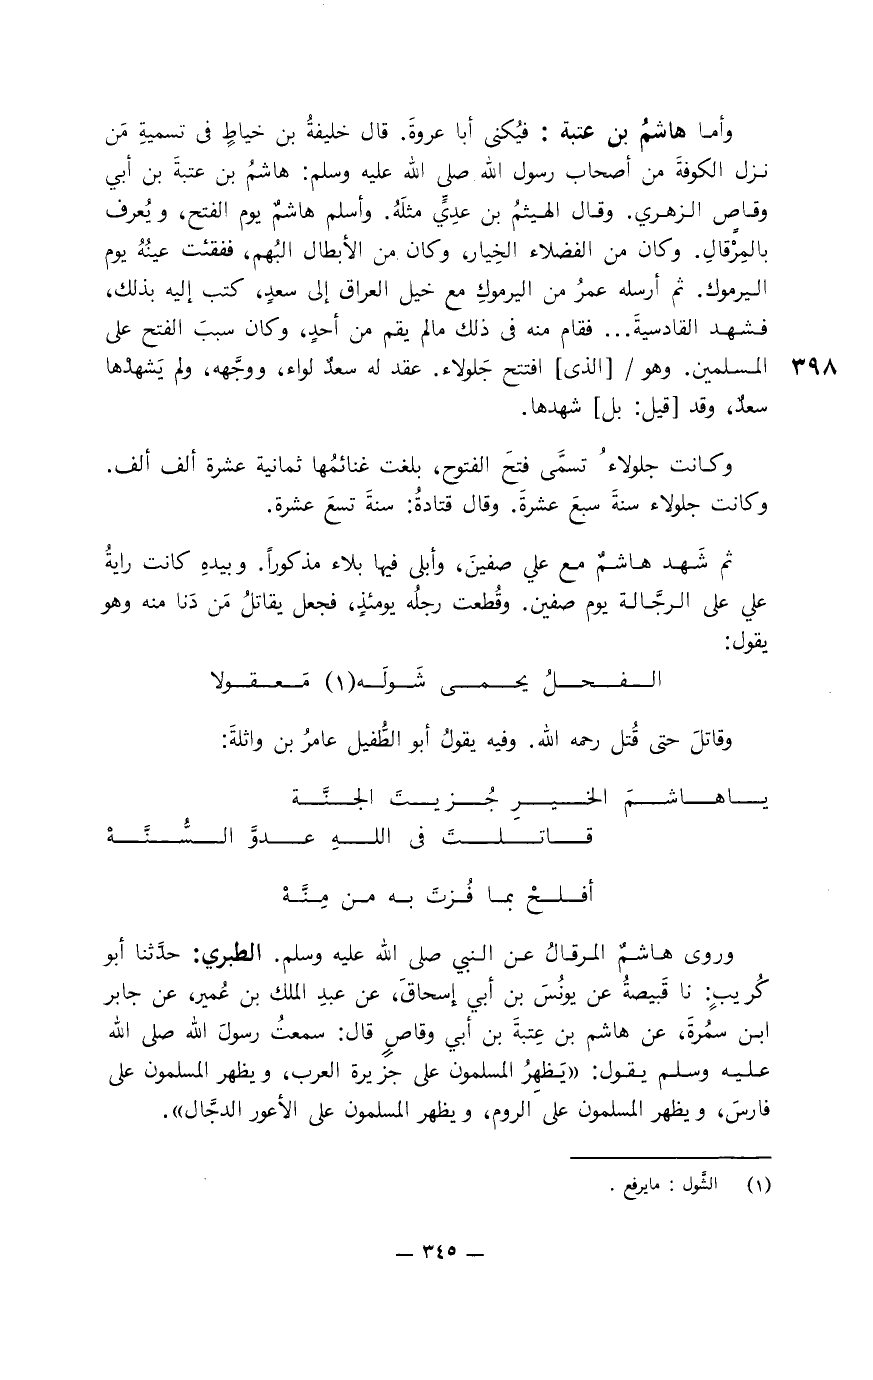 وأما هاشمُ بن عتبة : فيُكنى أبا عروةَ. قال خليفةُ بن خياطٍ في تسميةِ مَن
نزل الكوفةَ من أصحاب رسول الله صلى الله عليه وسلم: هاشمُ بن عتبةَ بن أبي
وقاصٍ الزهري. وقال الهيثمُ بن عديٍّ مثلَهُ. وأسلم هاشمٌ يوم الفتح، ويُعرف
بالمِرْقالِ. وكان من الفضلاء الخِيار، وكان من الأبطال البُهم، ففقئت عينُهُ يوم
اليرموك. ثم أرسله عمرُ من اليرموكِ مع خيل العراق إلى سعدٍ، كتب إليه بذلك،
فشهد القادسيةَ... فقام منه في ذلك مالم يقم من أحدٍ، وكان سببَ الفتح على
المسلمين. وهو / [الذى] افتتح جَلولاء. عقد له سعدٌ لواء، ووجَّهه، ولم يَشهدْها ٣٩٨
سعدٌ، وقد [قيل: بل] شهدها.
وكانت جلولاءُ تسمَّى فتحَ الفتوح، بلغت غنائمُها ثمانية عشرة ألف ألف.
وكانت جلولاء سنةَ سبعَ عشرةَ. وقال قتادةُ: سنةَ تسعَ عشرة.
ثم شَهد هاشمٌ مع علي صفينَ، وأبلى فيها بلاء مذكوراً. وبيدهِ كانت رايةُ
علي على الرجَّالة يوم صفين. وقُطعت رجلُه يومئذٍ، فجعل يقاتلُ مَن دَنا منه وهو
يقول:
الفحلُ يحمى شَولَه(١) مَعقولا
وقاتلَ حتى قُتل رحمه الله. وفيه يقولُ أبو الطُّفيل عامرُ بن واثلةَ:
ياهاشمَ الخيرِ جُزيتَ الجنَّة
قاتلتَ في اللهِ عدوَّ السُّنَّةْ
أفلحْ بما فُزتَ به من مِنَّةْ
وروى هاشمٌ المرقالُ عن النبي صلى الله عليه وسلم. الطبري: حدَّثنا أبو
كُريبٍ: نا قَبيصةُ عن يونُسَ بن أبي إسحاقَ، عن عبدِ الملك بن عُمير، عن جابر
ابن سمُرةَ، عن هاشم بن عِتبةَ بن أبي وقاصٍ قال: سمعتُ رسولَ الله صلى الله
عليه وسلم يقول: «يَظهرُ المسلمون على جزِيرة العرب، ويظهر المسلمون على
فارسَ، ويظهر المسلمون على الروم، ويظهر المسلمون على الأعور الدجَّال».
(١) الشَّول : مايرفع .
— ٣٤٥ —